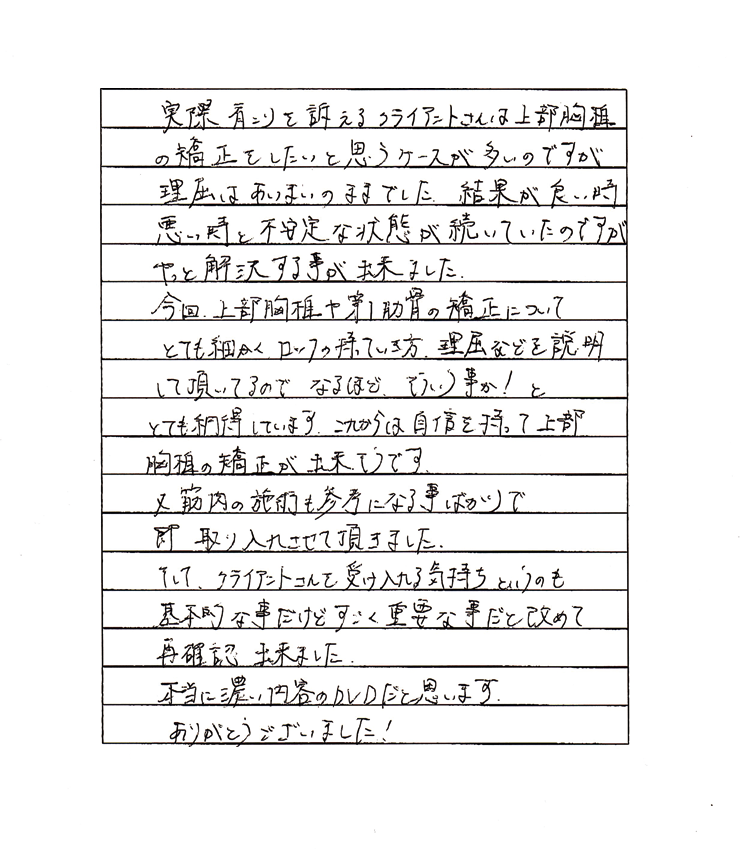 実際肩こりを訴えるクライアントさんは上部胸椎
の矯正をしたいと思うケースが多いのですが
理屈はあいまいのままでした. 結果が良い時
悪い時と不安定な状態が続いていたのですが
やっと解決する事が出来ました.
今回, 上部胸椎や第1肋骨の矯正について
とても細かく ロックの持っていき方, 理屈などを説明
して頂いてるので なるほど, そういう事か! と
とても納得しています. これからは自信を持って上部
胸椎の矯正が出来そうです.
又筋肉の施術も参考になる事ばかりで
即 取り入れさせて頂きました.
そして, クライアントさんを受け入れる気持ちというのも
基本的な事だけどすごく重要な事だと改めて
再確認 出来ました.
本当に濃い内容のDVDだと思います.
ありがとうございました!